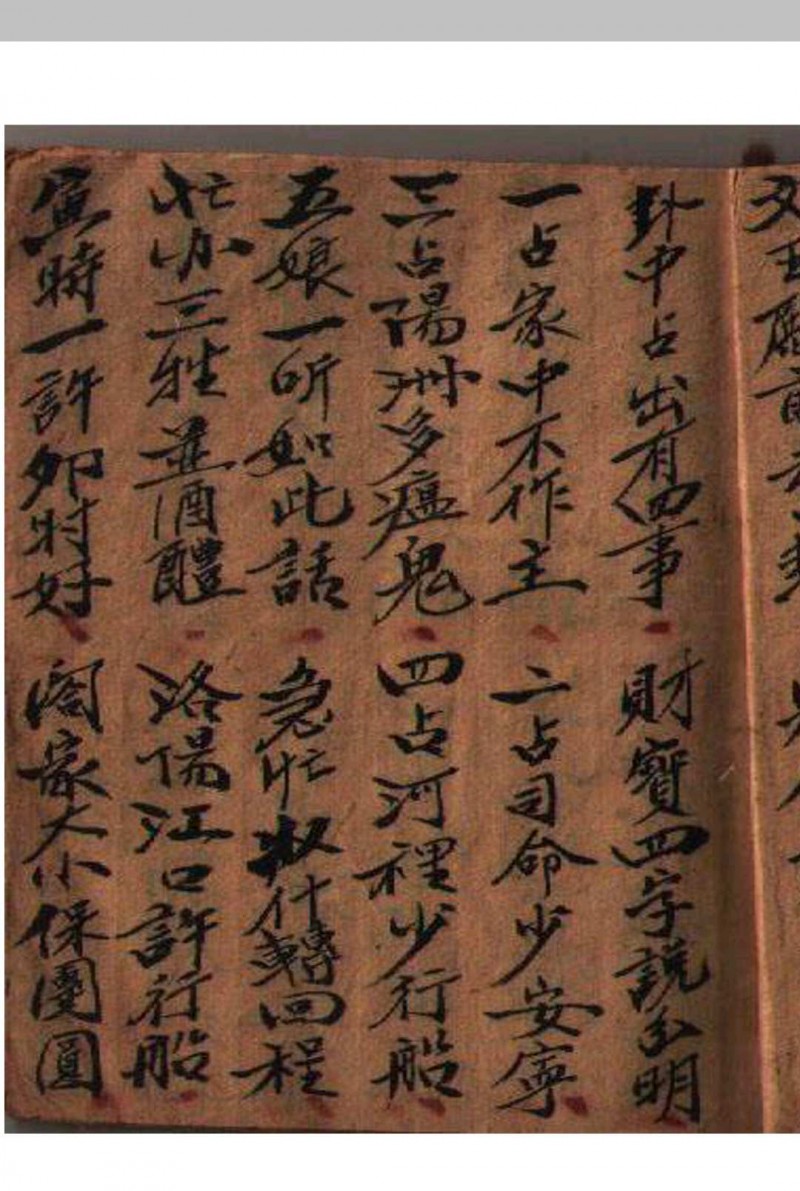 文王
卦中占出有四事 財寶四字說分明
一占家中不作主 二占司命少安寧
三占陽洲多瘟鬼 四占河裡少行船
五娘一听如此話 急忙收什轉回程
忙办三牲並酒醴 洛陽江口許行船
寅時一許卯时好 闔家大小保團圓